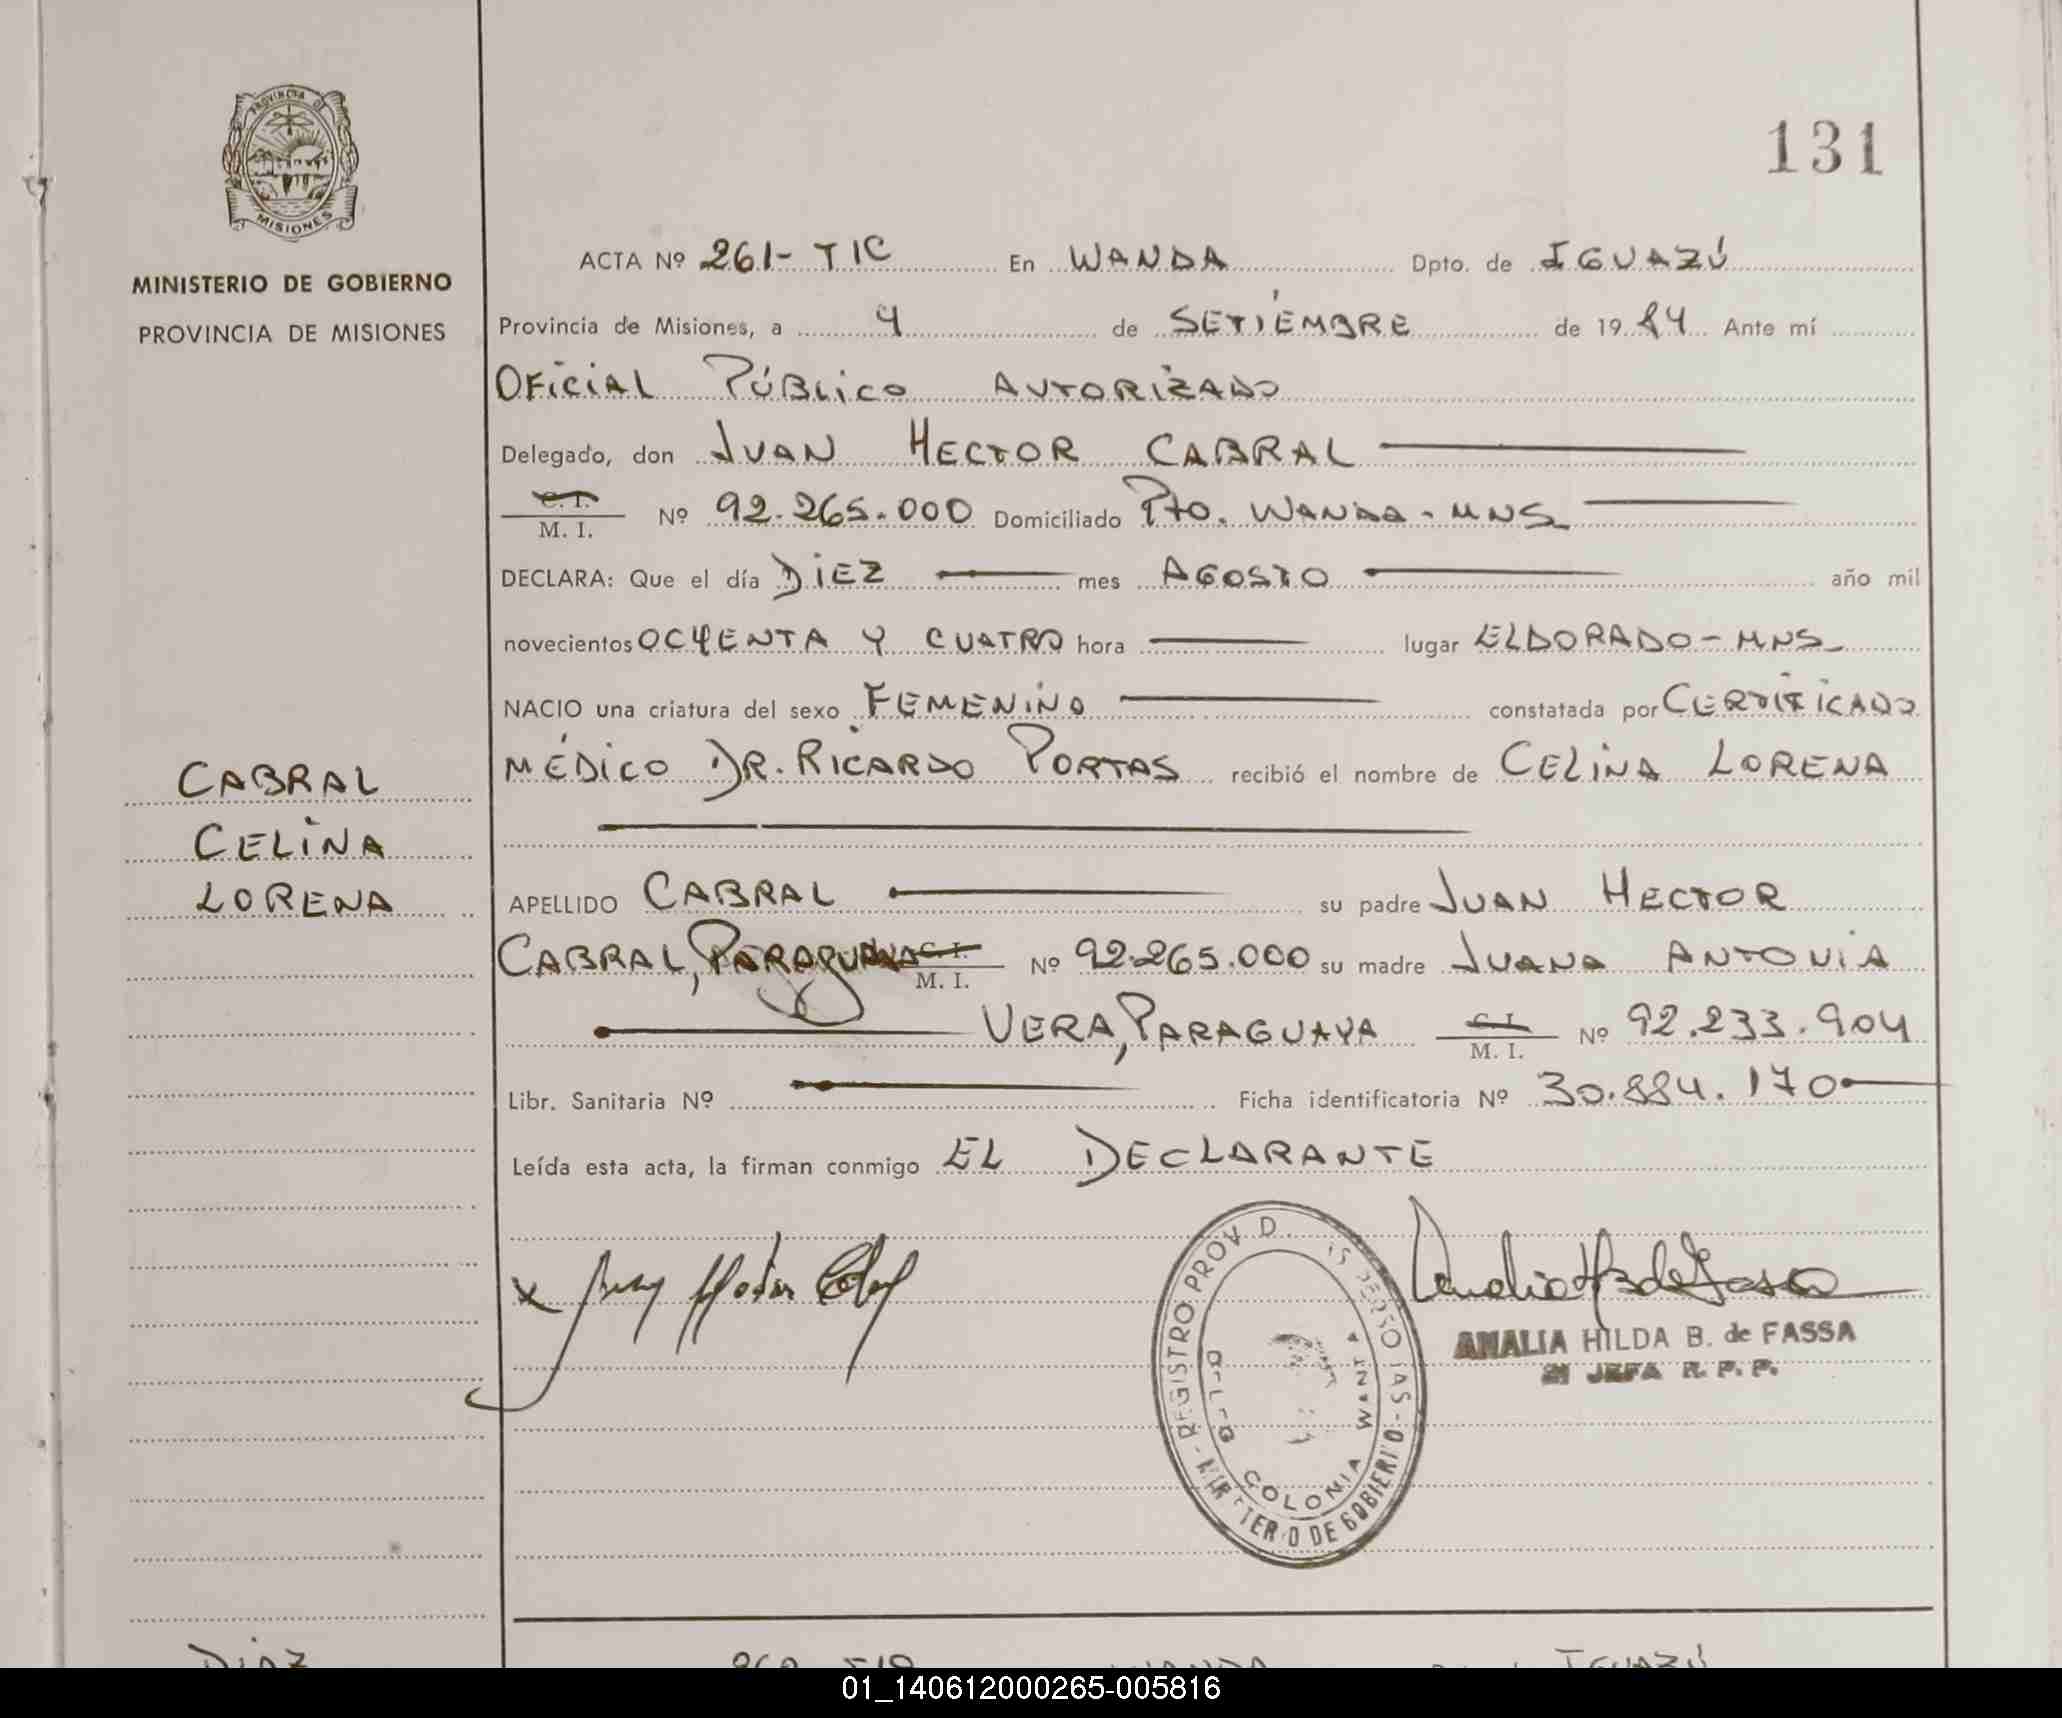 131
PROVINCIA DE
MISIONES
MINISTERIO DE GOBIERNO
PROVINCIA DE MISIONES
ACTA Nº 261-TIC En WANDA Dpto. de IGUAZÚ
Provincia de Misiones, a 4 de SETIEMBRE de 1984 Ante mí
OFICIAL PÚBLICO AUTORIZADO
Delegado, don JUAN HECTOR CABRAL
C. I.
M. I. Nº 92.265.000 Domiciliado Pto. WANDA-MNS
DECLARA: Que el día DIEZ mes AGOSTO año mil
novecientos OCHENTA Y CUATRO hora lugar ELDORADO-MNS
NACIO una criatura del sexo FEMENINO constatada por CERTIFICADO
MÉDICO DR. RICARDO PORTAS recibió el nombre de CELINA LORENA
CABRAL
CELINA
LORENA
APELLIDO CABRAL su padre JUAN HECTOR
CABRAL, PARAGUAYA C. I.
M. I. Nº 92.265.000 su madre JUANA ANTONIA
VERA, PARAGUAYA C. I.
M. I. Nº 92.233.904
Libr. Sanitaria Nº Ficha identificatoria Nº 30.884.170
Leída esta acta, la firman conmigo EL DECLARANTE
REGISTRO PROV. D. PERSO AS - MIN TERIO DE GOBIERNO
COLONIA WANDA
AMALIA HILDA B. de FASSA
JEFA R. P. P.
DIAZ WANDA IGUAZÚ
01_140612000265-005816